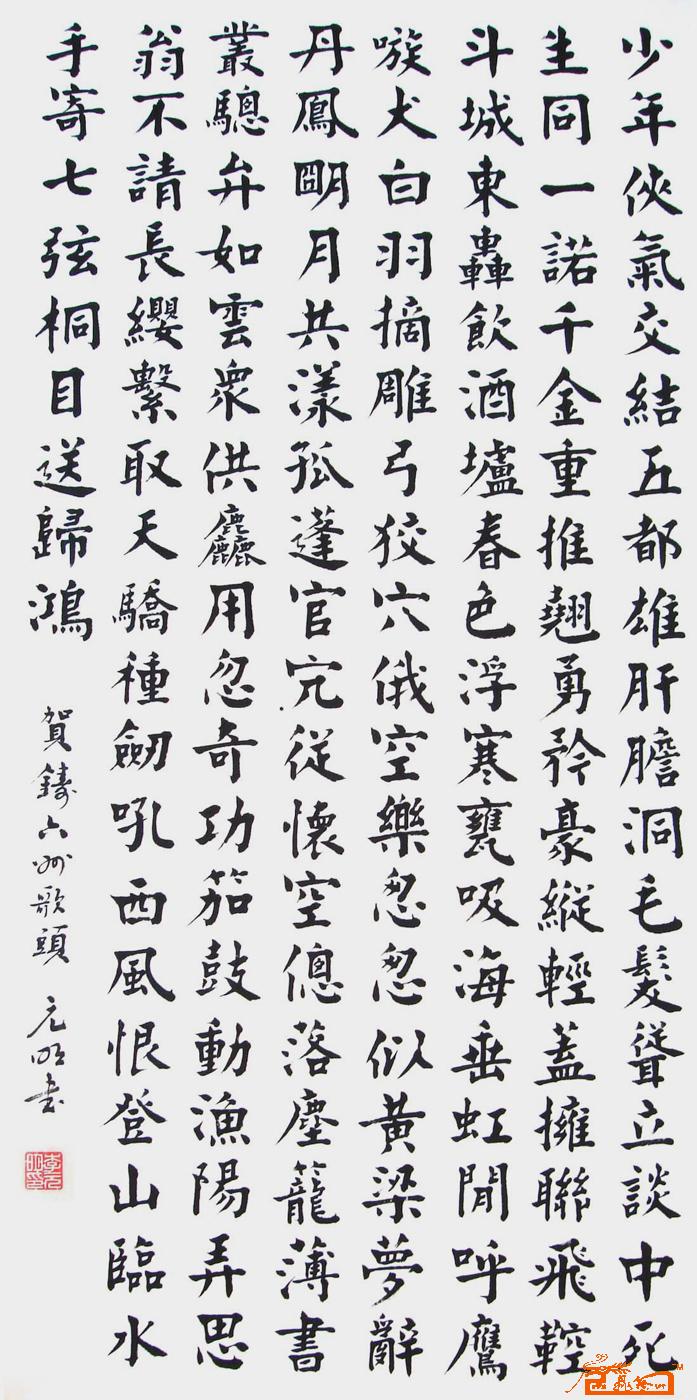 少年俠氣交結五都雄肝膽洞毛髮聳立談中死
生同一諾千金重推翹勇矜豪縱輕蓋擁聯飛鞚
斗城東轟飲酒壚春色浮寒甕吸海垂虹閒呼鷹
嗾犬白羽摘雕弓狡穴俄空樂怱怱似黃梁夢辭
丹鳳朙月共漾孤蓬官宂從懷空傯落塵籠薄書
叢鶡弁如雲衆供麤用忽奇功笳鼓動漁陽弄思
翁不請長纓繫取天驕種劒吼西風恨登山臨水
手寄七弦桐目送歸鴻
賀鑄六州歌頭 元明書
李元明印